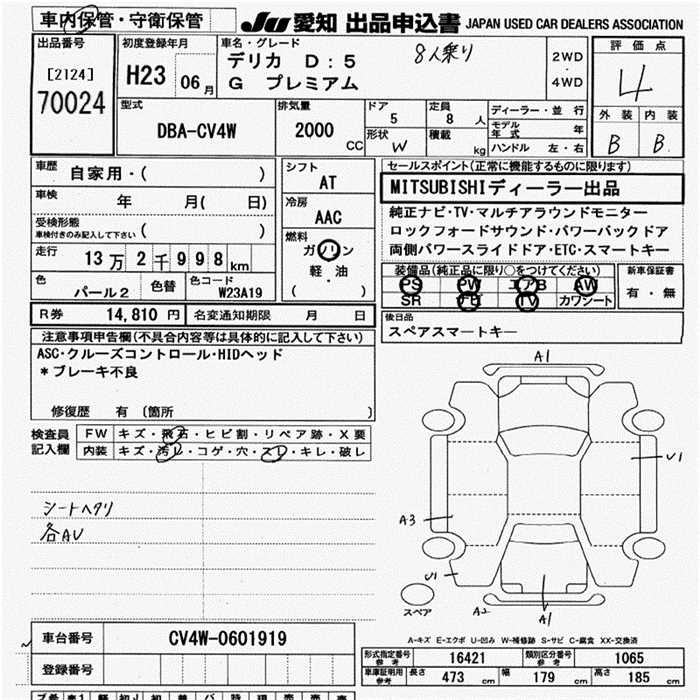 車内保管・守衛保管
JU 愛知 出品申込書 JAPAN USED CAR DEALERS ASSOCIATION
出品番号
[2124]
70024
初度登録年月
H23 06月
車名・グレード
デリカ D:5
G プレミアム
8人乗り
2WD
・
4WD
評価点
4
外装 内装
B B
型式
DBA-CV4W
排気量
2000 CC
ドア
5
定員
8 人
形状
W
積載
kg
ディーラー・並行
モデル年式 年
ハンドル 左・右
車歴 自家用・( )
車検 年 月( 日)
受検形態
車検付きのみ記入して下さい ( )
走行 13万2千998km
色 パール2
色替
色コード W23A19
シフト
AT
冷房
AAC
燃料
ガソリン
軽・油
( )
セールスポイント(正常に機能するものに限ります)
MITSUBISHIディーラー出品
純正ナビ・TV・マルチアラウンドモニター
ロックフォードサウンド・パワーバックドア
両側パワースライドドア・ETC・スマートキー
装備品(純正品に限り○をつけてください)
PS PW エアB AW
SR ナビ TV カワシート
新車保証書
有・無
R券 14,810 円 名変通知期限 月 日
後日品
スペアスマートキー
注意事項申告欄(不具合内容等は具体的に記入して下さい)
ASC・クルーズコントロール・HIDヘッド
*ブレーキ不良
修復歴 有 (箇所 )
検査員
記入欄
FW キズ・飛石・ヒビ割・リペア跡・X要
内装 キズ・汚レ・コゲ・穴・スレ・キレ・破レ
シートヘタリ
各AU
A1
U1
A3
U1
A2
A1
スペア
A-キズ E-エクボ U-凹み W-補修跡 S-サビ C-腐食 XX-交換済
車台番号 CV4W-0601919
登録番号
形式指定番号
参考
16421
類別区分番号
参考
1065
車庫証明用
参考
長さ 473 cm 幅 179 cm 高さ 185 cm